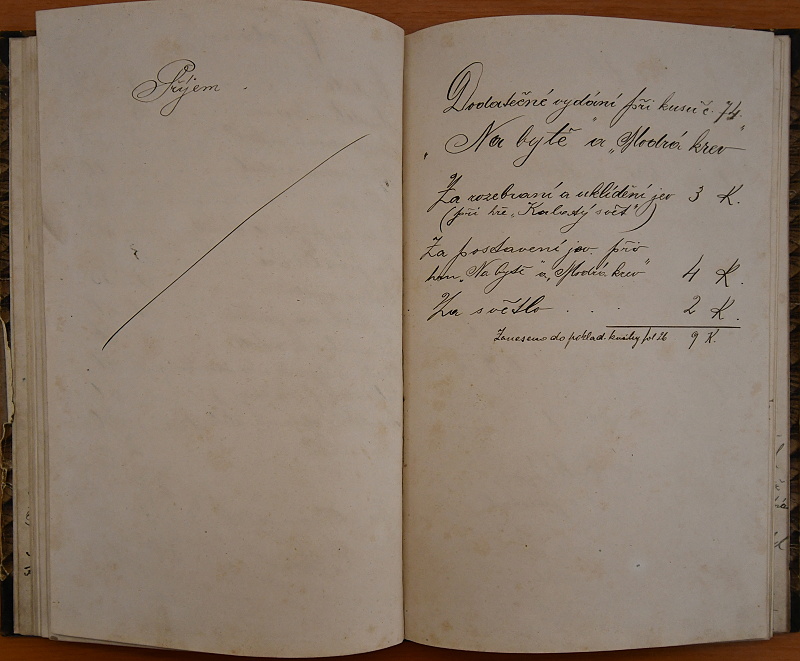 Příjem.
Dodatečné vydání při kusu č. 74.
„Na bytě" a „Modrá krev"
Za rozebraní a uklidění jev 3 K.
(při hře „Kalvatý svět")
Za postavení jev. pro
„Na bytě" a „Modrá krev" 4 K.
Za světlo . . . 2 K.
Zaneseno do poklad. knihy fol 26 9 K.